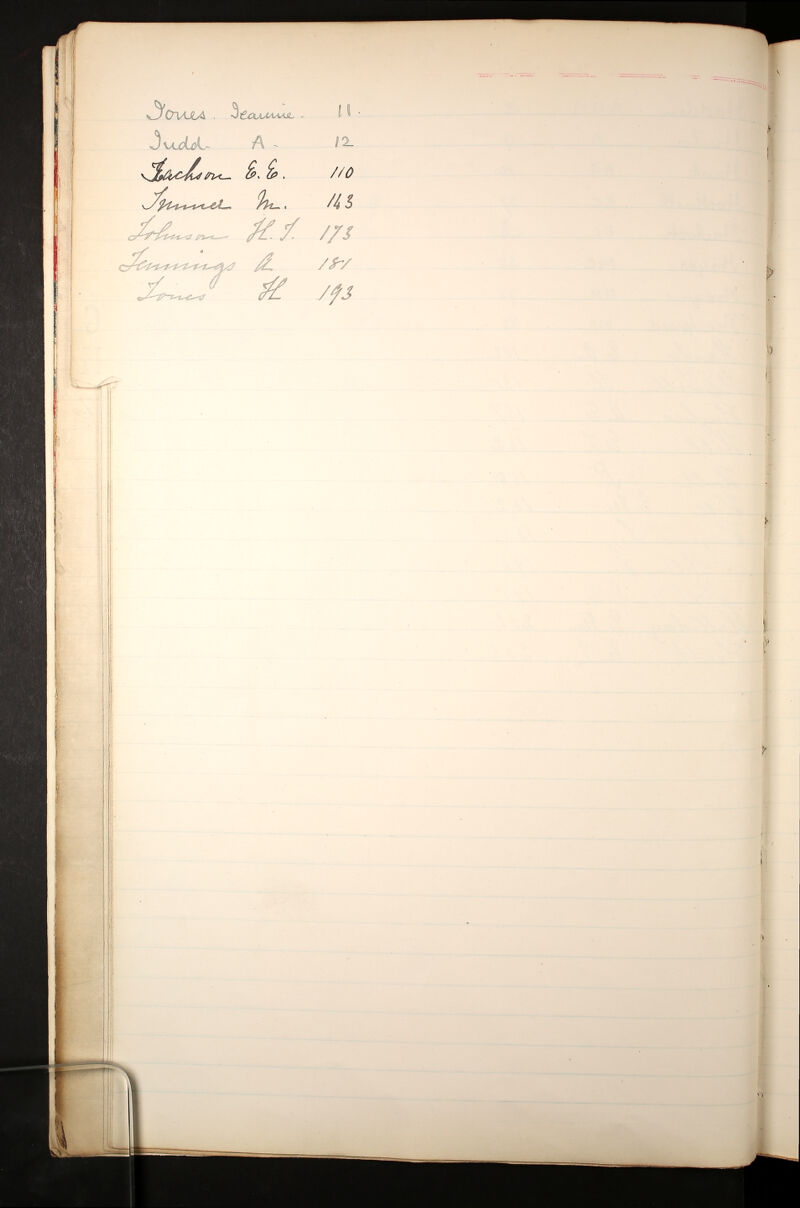 Jones. Jeannie. 11.
Judd. A. 12
Jackson E.E. 110
M. 143
Johnson H.J. 173
Jennings A 181
Jones H 193